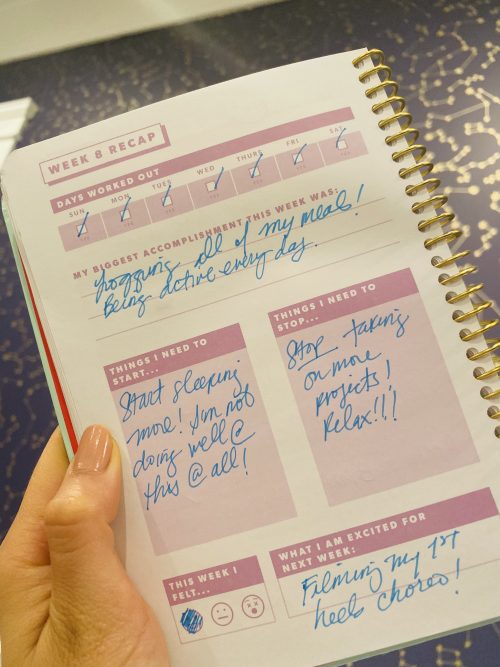 WEEK 8 RECAP
DAYS WORKED OUT
SUN MON TUES WED THURS FRI SAT
YES YES YES YES YES YES YES
MY BIGGEST ACCOMPLISHMENT THIS WEEK WAS:
Logging all of my meals!
Being active every day.
THINGS I NEED TO
START...
Start sleeping
more! I'm not
doing well @
this @ all!
THINGS I NEED TO
STOP...
Stop taking
on more
projects!
Relax!!!
THIS WEEK I
FELT...
WHAT I AM EXCITED FOR
NEXT WEEK:
Filming my 1st
heels choreo!